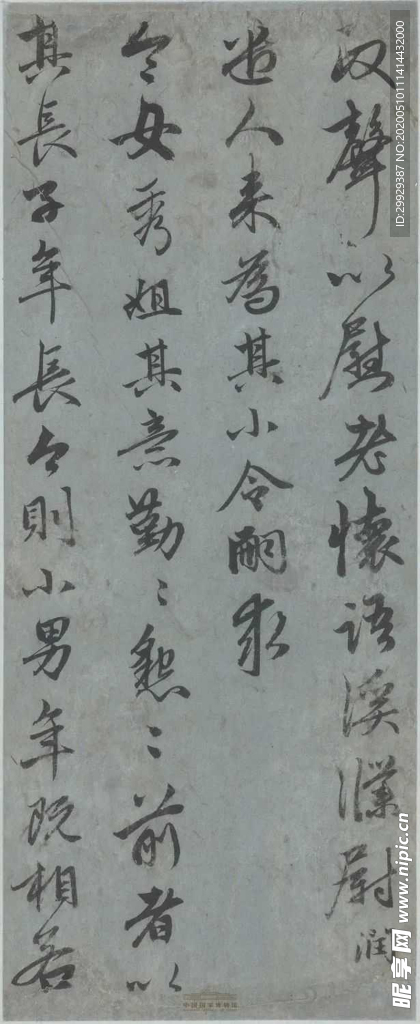 聲以慰老懷語溪濮尉潤
遣人来為其小令嗣求
令女秀姐其意勤〻懇〻前者以
其長子年長今則小男年既相若
中国国家博物馆
ID:29929387 NO:20200510111414432000
昵享网 www.nipic.cn